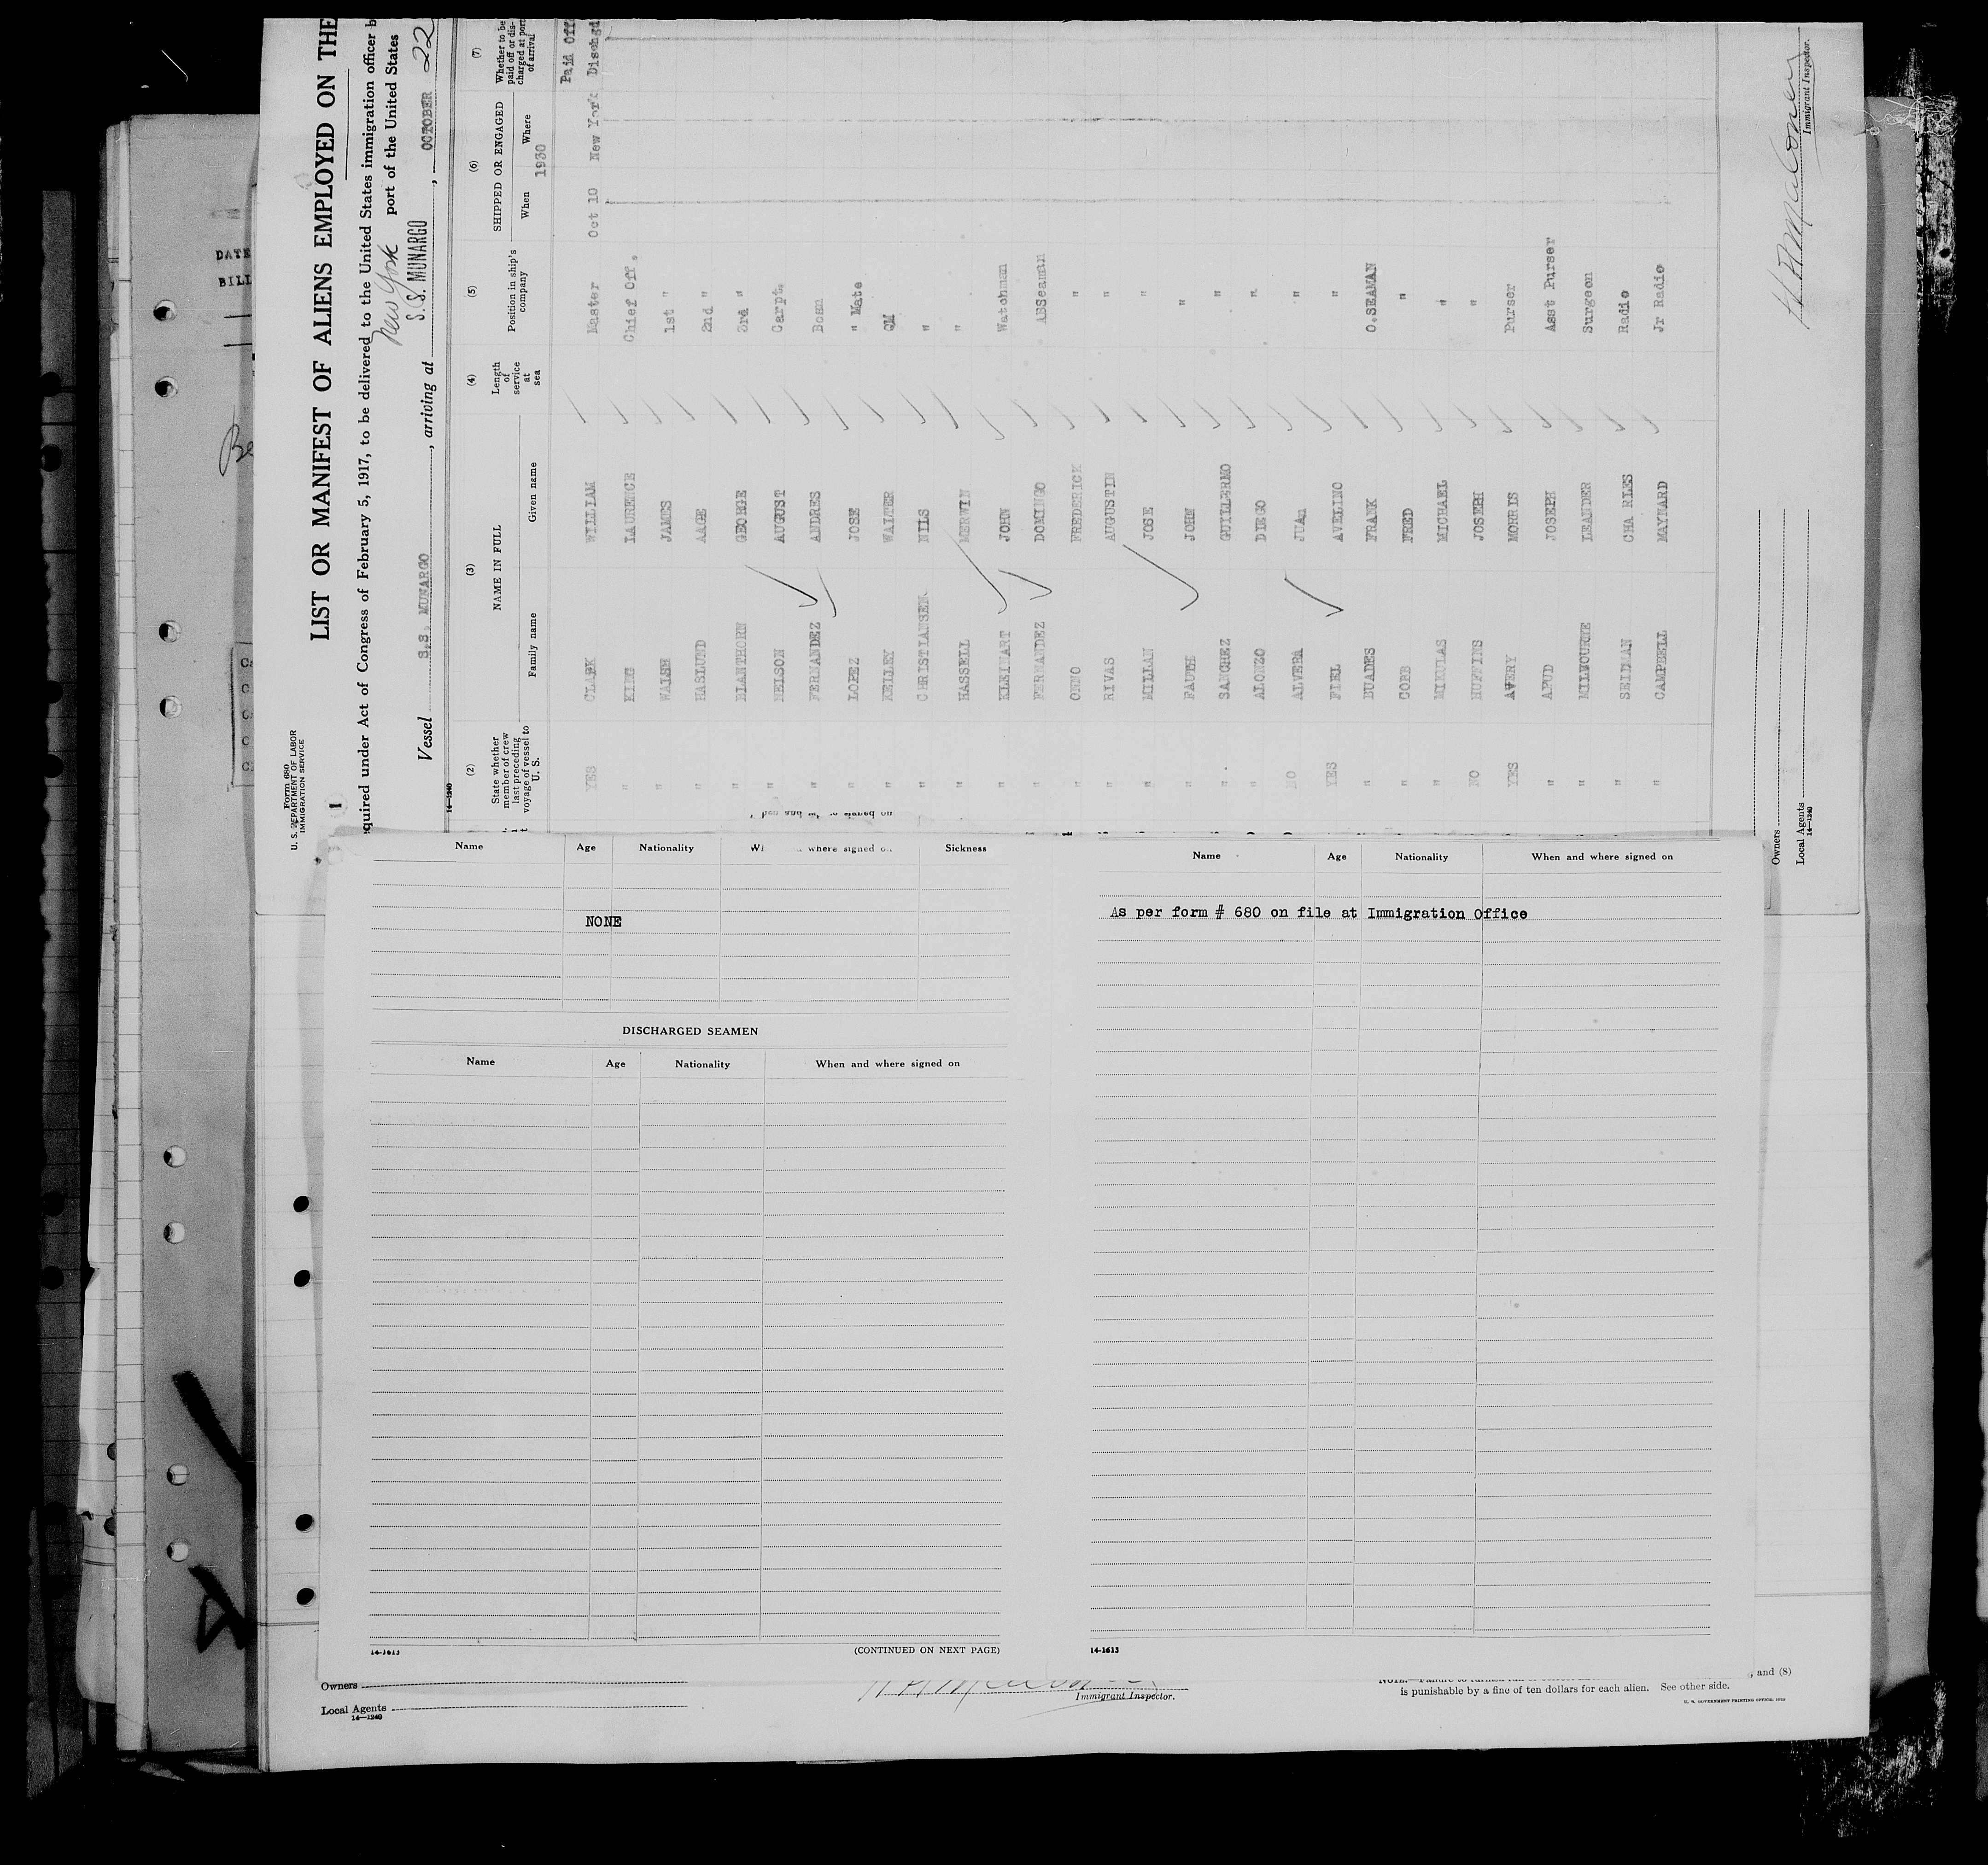 Form 680
U. S. DEPARTMENT OF LABOR
IMMIGRATION SERVICE
1
LIST OR MANIFEST OF ALIENS EMPLOYED ON THE
equired under Act of Congress of February 5, 1917, to be delivered to the United States immigration officer b
New York port of the United States
Vessel S.S. MUNARGO, arriving at S.S. MUNARGO, OCTOBER 22
14—1240
(2) (3) (4) (5) (6) (7)
State whether member of crew last preceding voyage of vessel to U. S.
NAME IN FULL
Family name Given name
Length of service at sea
Position in ship's company
SHIPPED OR ENGAGED
When Where
Whether to be paid off or discharged at port of arrival
1930 Paid Off
YES CLARK WILLIAM Master Oct 10 New York Dischgd
" KING LAURENCE Chief Off.
" WALSH JAMES 1st "
" HASLUND AAGE 2nd "
" BLANTHORN GEORGE 3rd "
" NELSON AUGUST Carpt.
" FERNANDEZ ANDRES Bosn
" LOPEZ JOSE " Mate
" KELLEY WALTER QM
" CHRISTIANSEN NILS "
" HASSELL MERWIN "
" KLEINART JOHN Watchman
" FERNANDEZ DOMINGO ABSeaman
" ONNO FREDERICK "
" RIVAS AUGUSTIN "
" MILLAN JOSE "
" FAUTH JOHN "
" SANCHEZ GUILLERMO "
" ALONZO DIEGO "
NO ALVERA JUAn "
YES FIEL AVELINO "
" BUADES FRANK O.SEAMAN
" COBB FRED "
" MIKULAS MICHAEL "
NO HUFFINS JOSEPH "
YES AVERY MORRIS Purser
" APUD JOSEPH Asst Purser
" MILBOURNE LEANDER Surgeon
" SEIDMAN CHA RLES Radio
" CAMPBELL MAYNARD Jr Radio
Immigrant Inspector.
Owners
Local Agents
14—1240
DATE
BILL
Be
Name Age Nationality where signed on Sickness
NONE
DISCHARGED SEAMEN
Name Age Nationality When and where signed on
14-1613
(CONTINUED ON NEXT PAGE)
Name Age Nationality When and where signed on
As per form # 680 on file at Immigration Office
14-1613
Owners
Local Agents
14—1240
Immigrant Inspector.
, and (8)
is punishable by a fine of ten dollars for each alien. See other side.
U. S. GOVERNMENT PRINTING OFFICE: